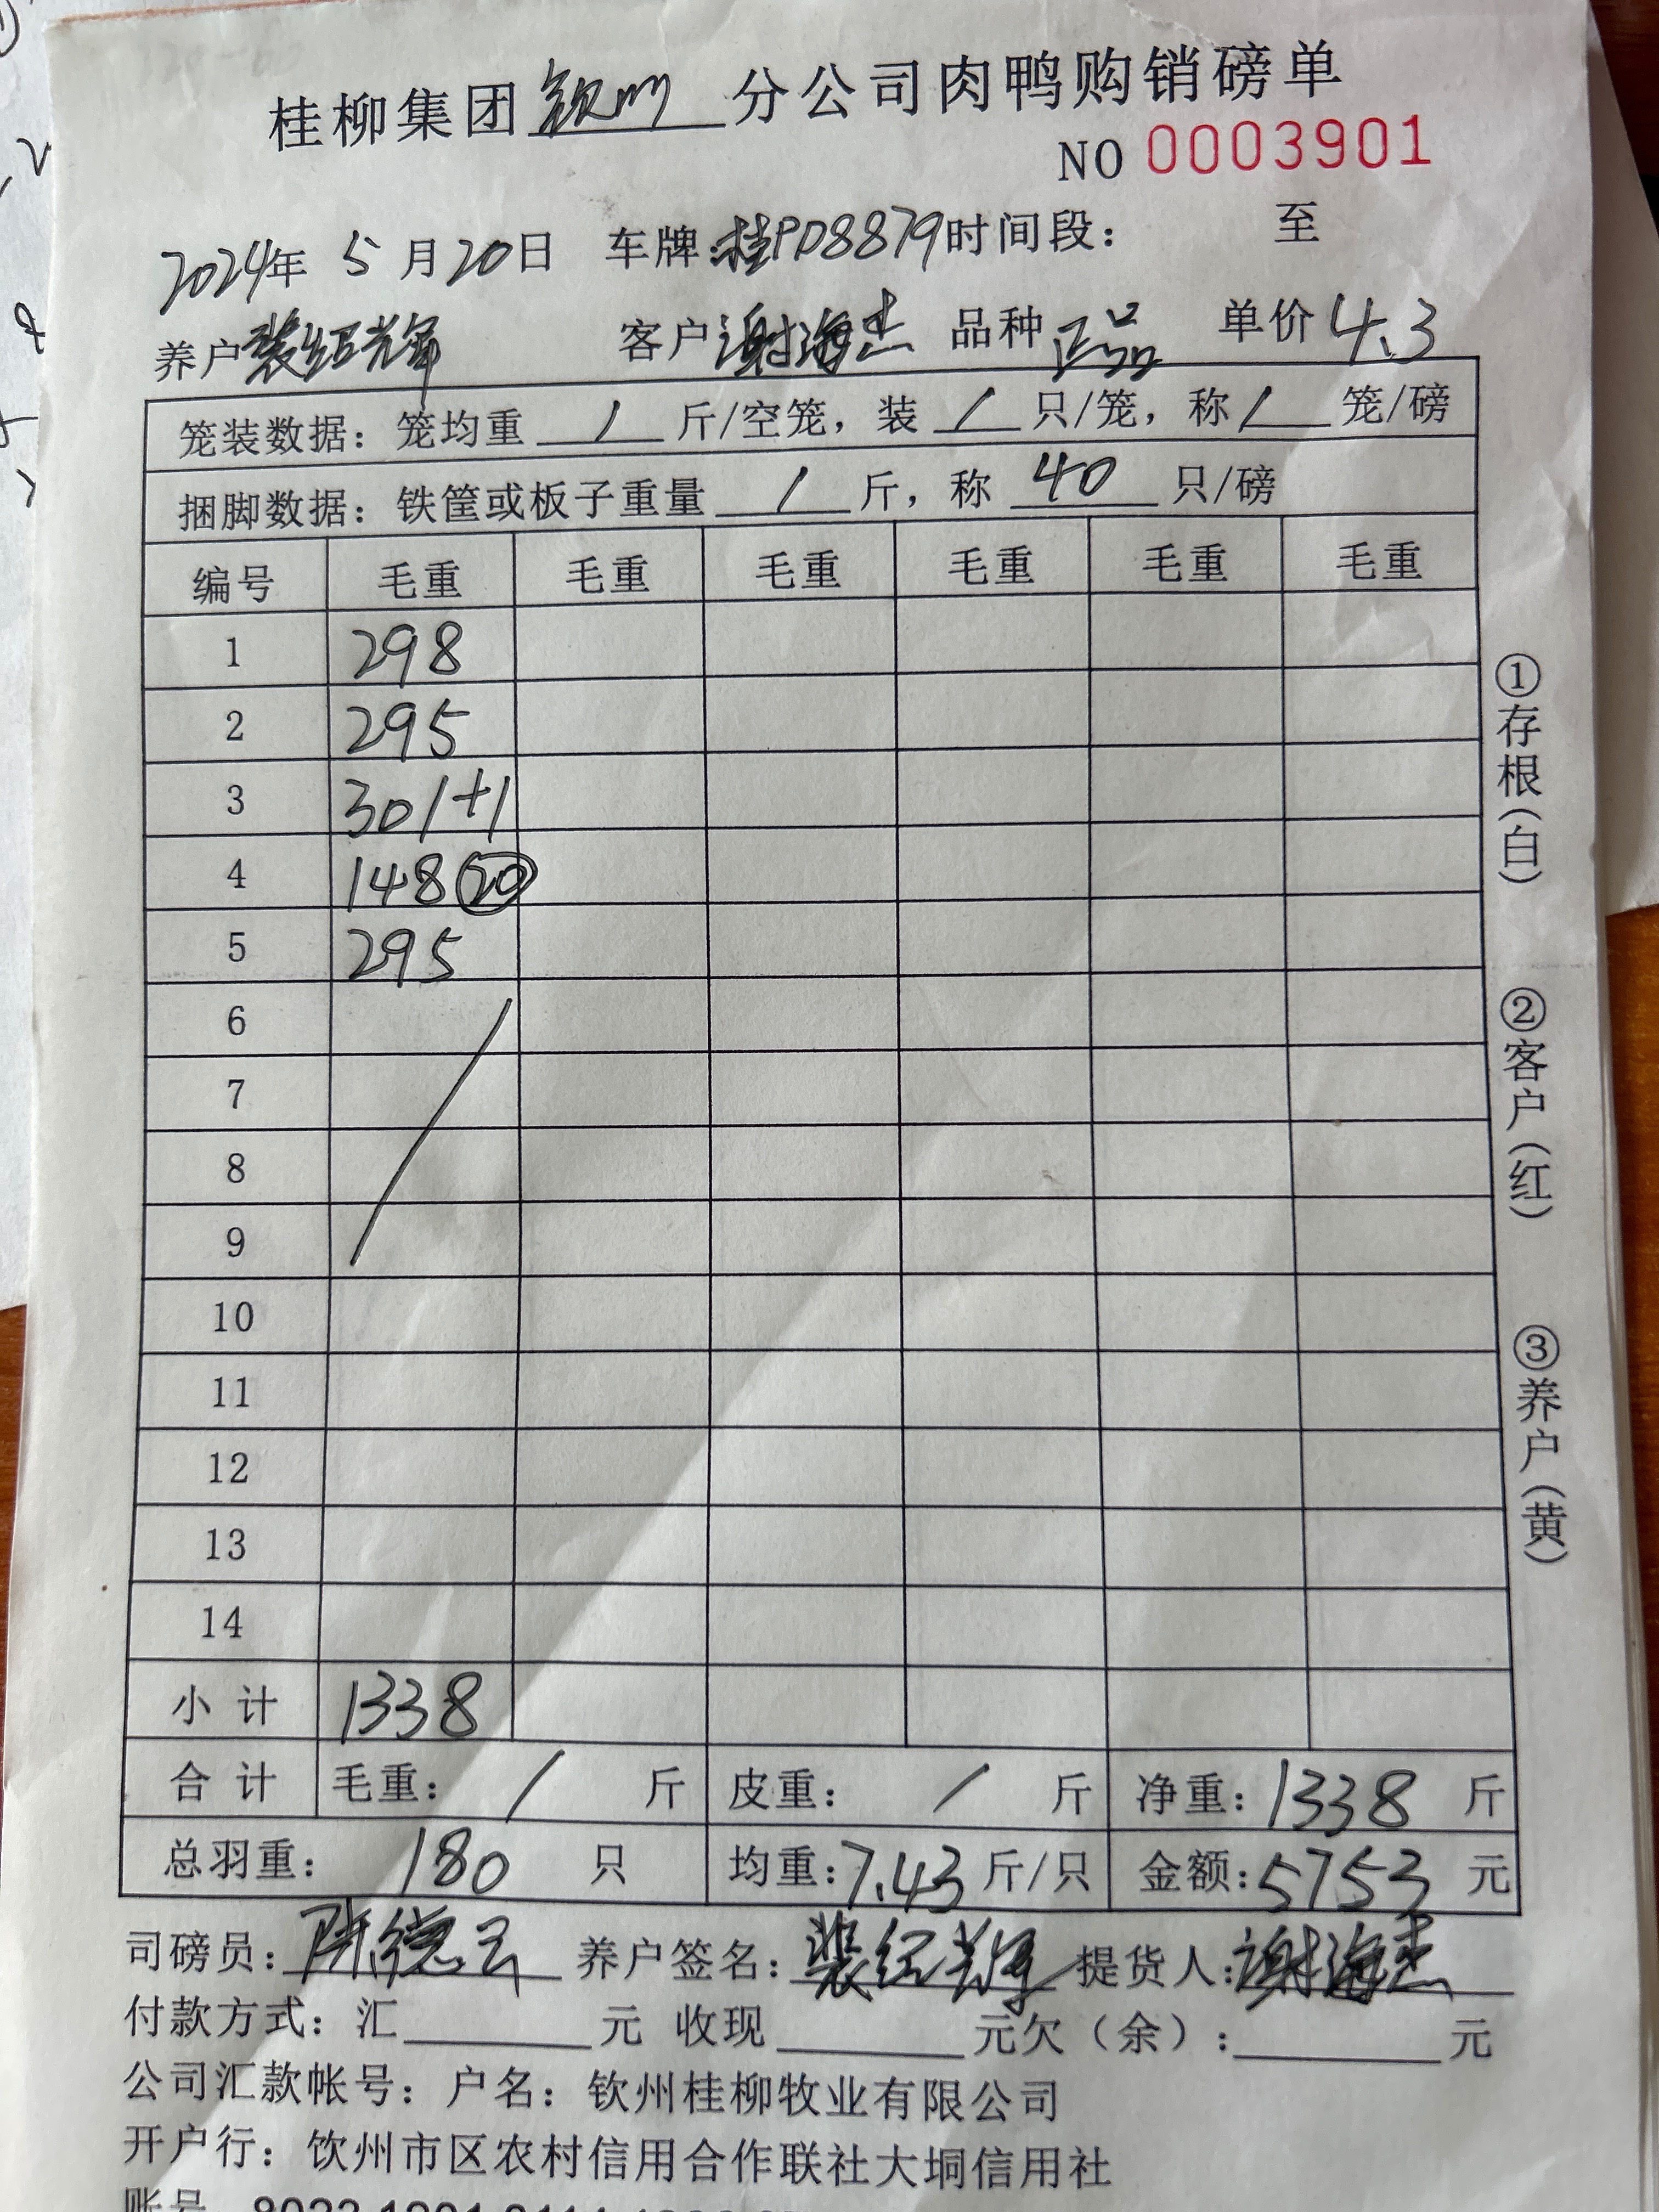 桂柳集团钦州分公司肉鸭购销磅单
NO 0003901
2024年 5 月 20 日 车牌:桂PD8879 时间段: 至
养户 裴绍辉 客户 谢海杰 品种 正品 单价 4.3
笼装数据: 笼均重 / 斤/空笼, 装 / 只/笼, 称 / 笼/磅
捆脚数据: 铁筐或板子重量 / 斤, 称 40 只/磅
编号 毛重 毛重 毛重 毛重 毛重 毛重
1 298
2 295
3 301+1
4 148 20
5 295
6
7
8
9
10
11
12
13
14
小计 1338
合计 毛重: / 斤 皮重: / 斤 净重: 1338 斤
总羽重: 180 只 均重: 7.43 斤/只 金额: 5753 元
司磅员: 陈德云 养户签名: 提货人: 谢海杰
付款方式: 汇 元 收现 元欠(余): 元
公司汇款帐号: 户名: 钦州桂柳牧业有限公司
开户行: 钦州市区农村信用合作联社大垌信用社
账号
①存根(白)
②客户(红)
③养户(黄)